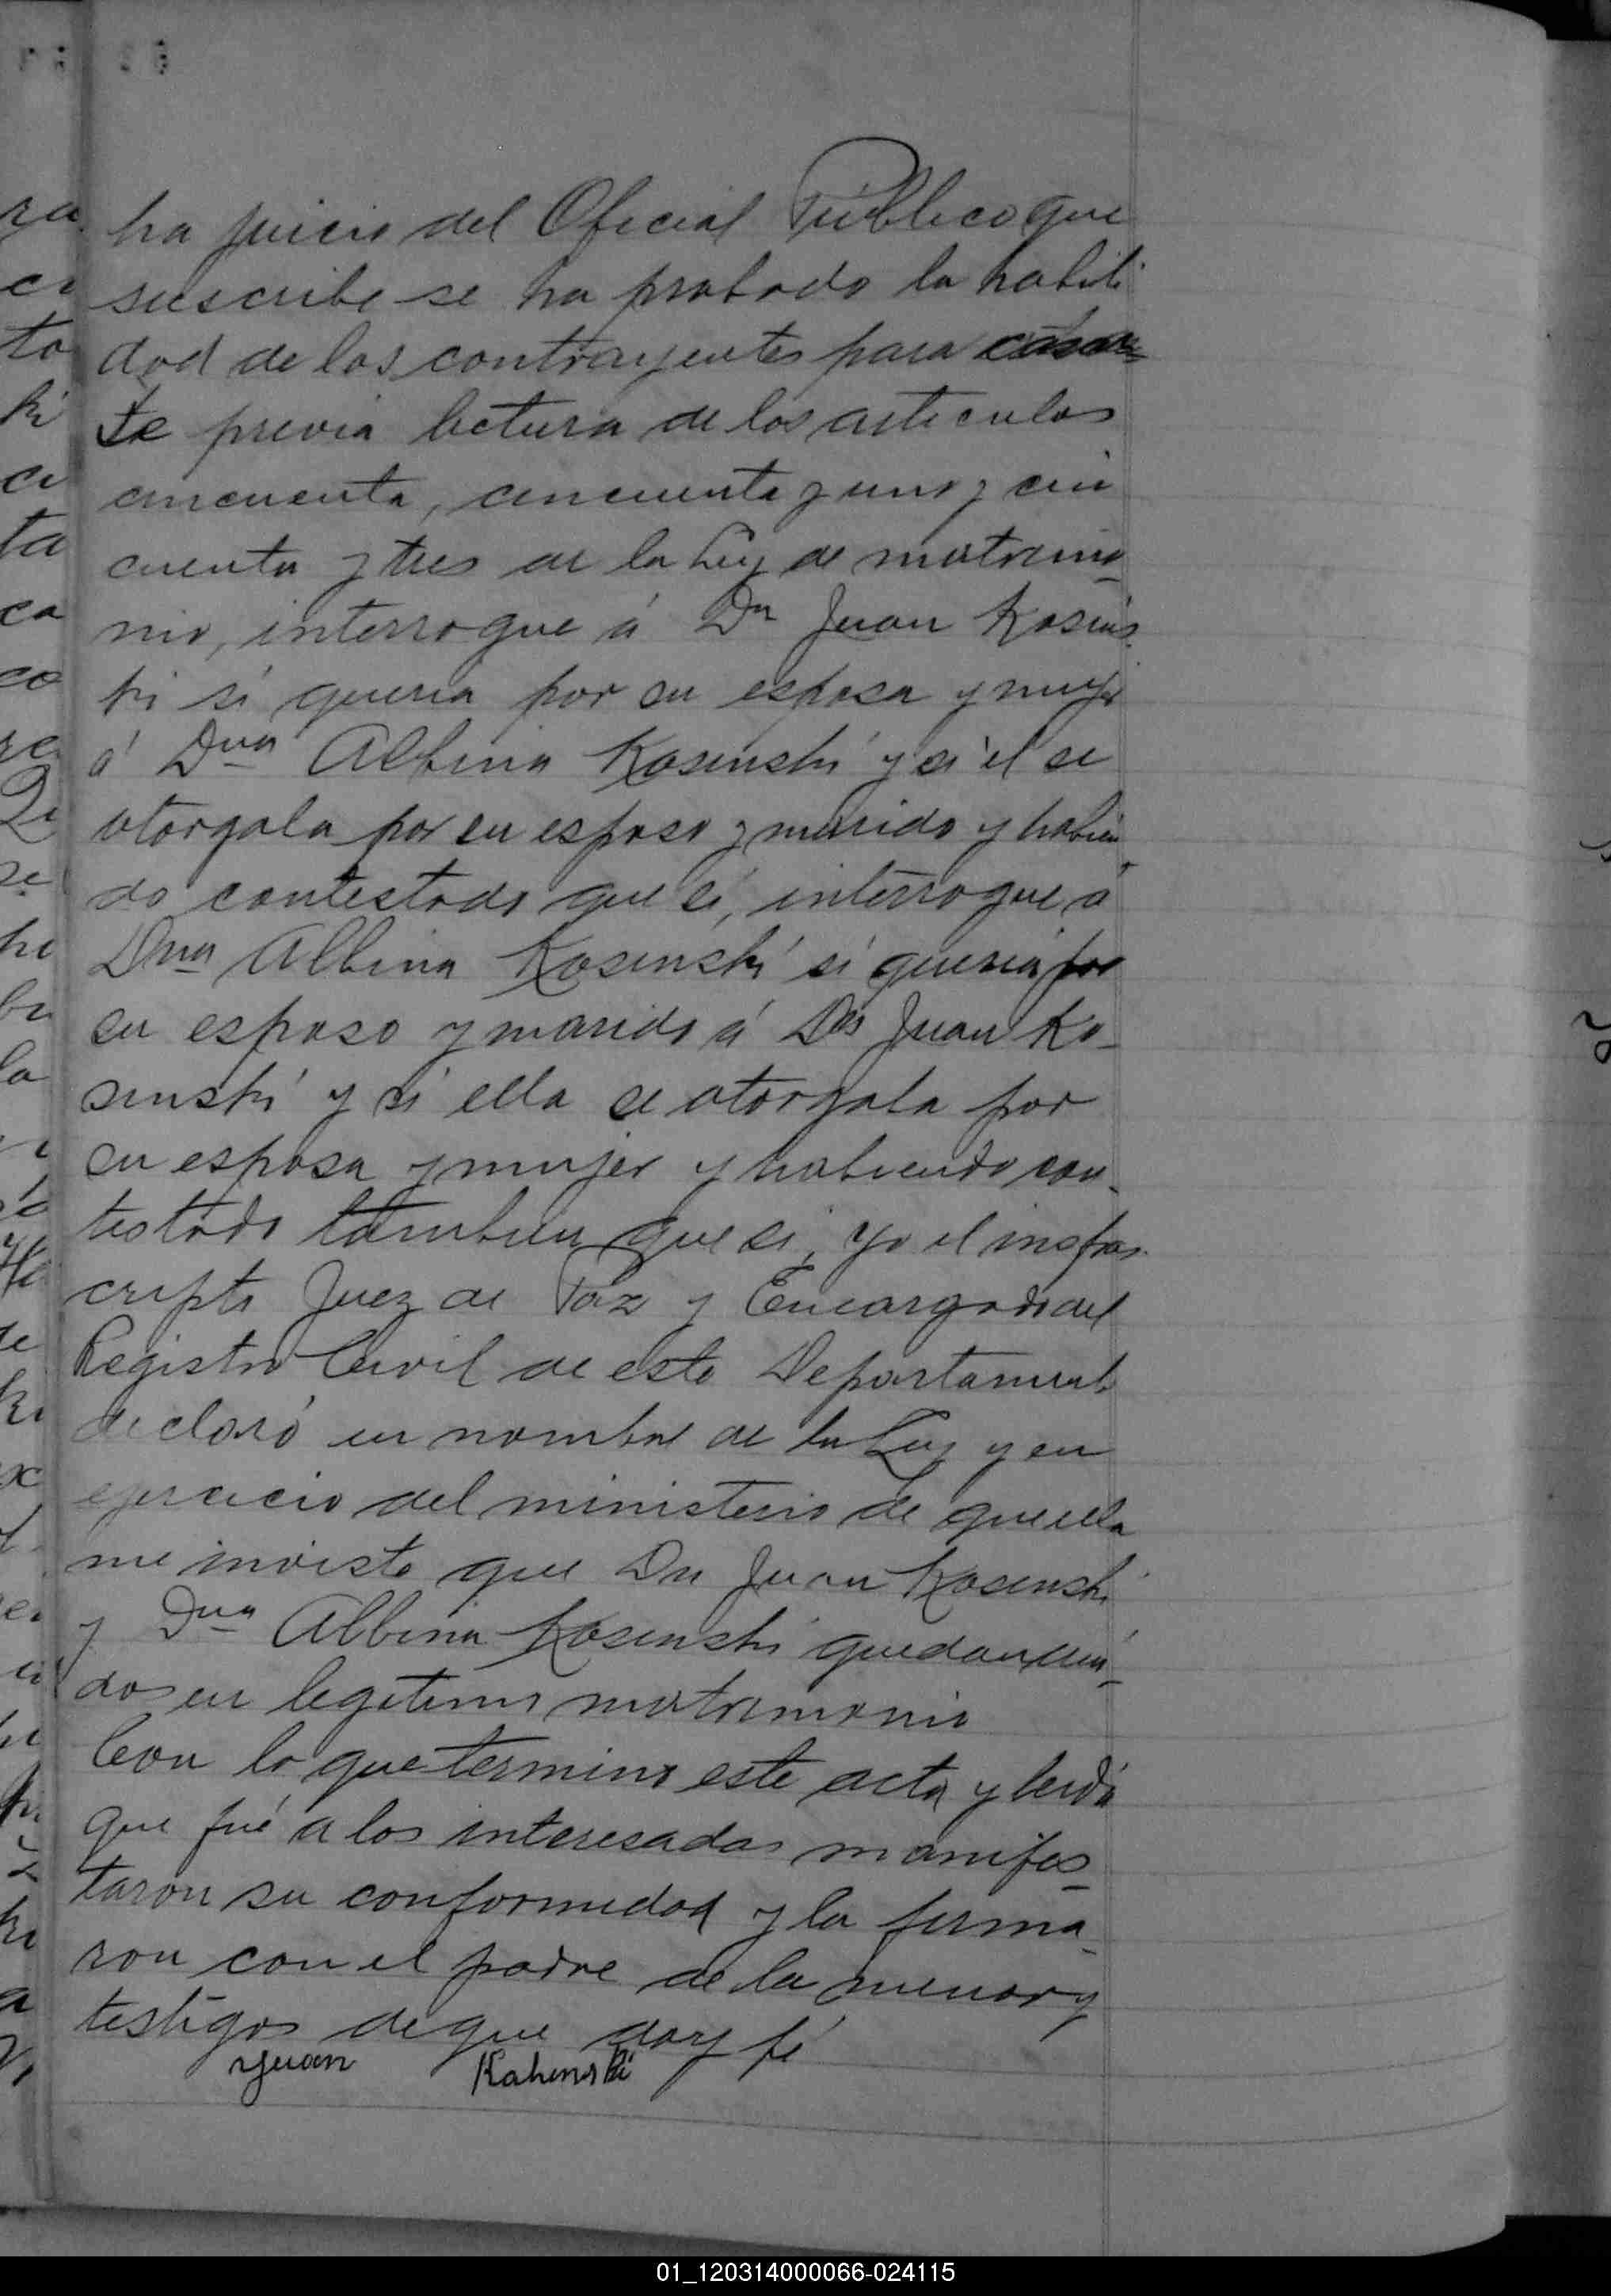 ha juicio del Oficial Público que
suscribe se ha probado la habili
dad de los contrayentes para casar
se previa lectura de los articulos
cincuenta, cincuenta y uno y cin
cuenta y tres de la Ley de matrimo_
nio, interrogue á Dn Juan Kosins_
ki si queria por su esposa y mujer
á Dna Albina Kosinski y si el se
otorgala por su esposo y marido y habien_
do contestado que si, interrogue á
Dna Albina Kosinski si queria por
su esposo y marido á Dn Juan Ko_
sinski y si ella se otorgala por
su esposa y mujer y habiendo con_
testado tambien que si, yo el infras
cripto Juez de Paz y Encargado del
Registro Civil de este Departamento
declaró en nombre de la Ley y en
ejercicio del ministerio de que ella
me inviste que Dn Juan Kosinski
y Dna Albina Kosinski quedan uni_
dos en legitimo matrimonio
Con lo que termino este acta y leida
que fué a los interesados manifes_
taron su conformidad y la firma_
ron con el padre de la menor y
testigos de que doy fé
Juan Kahenski
01_120314000066-024115